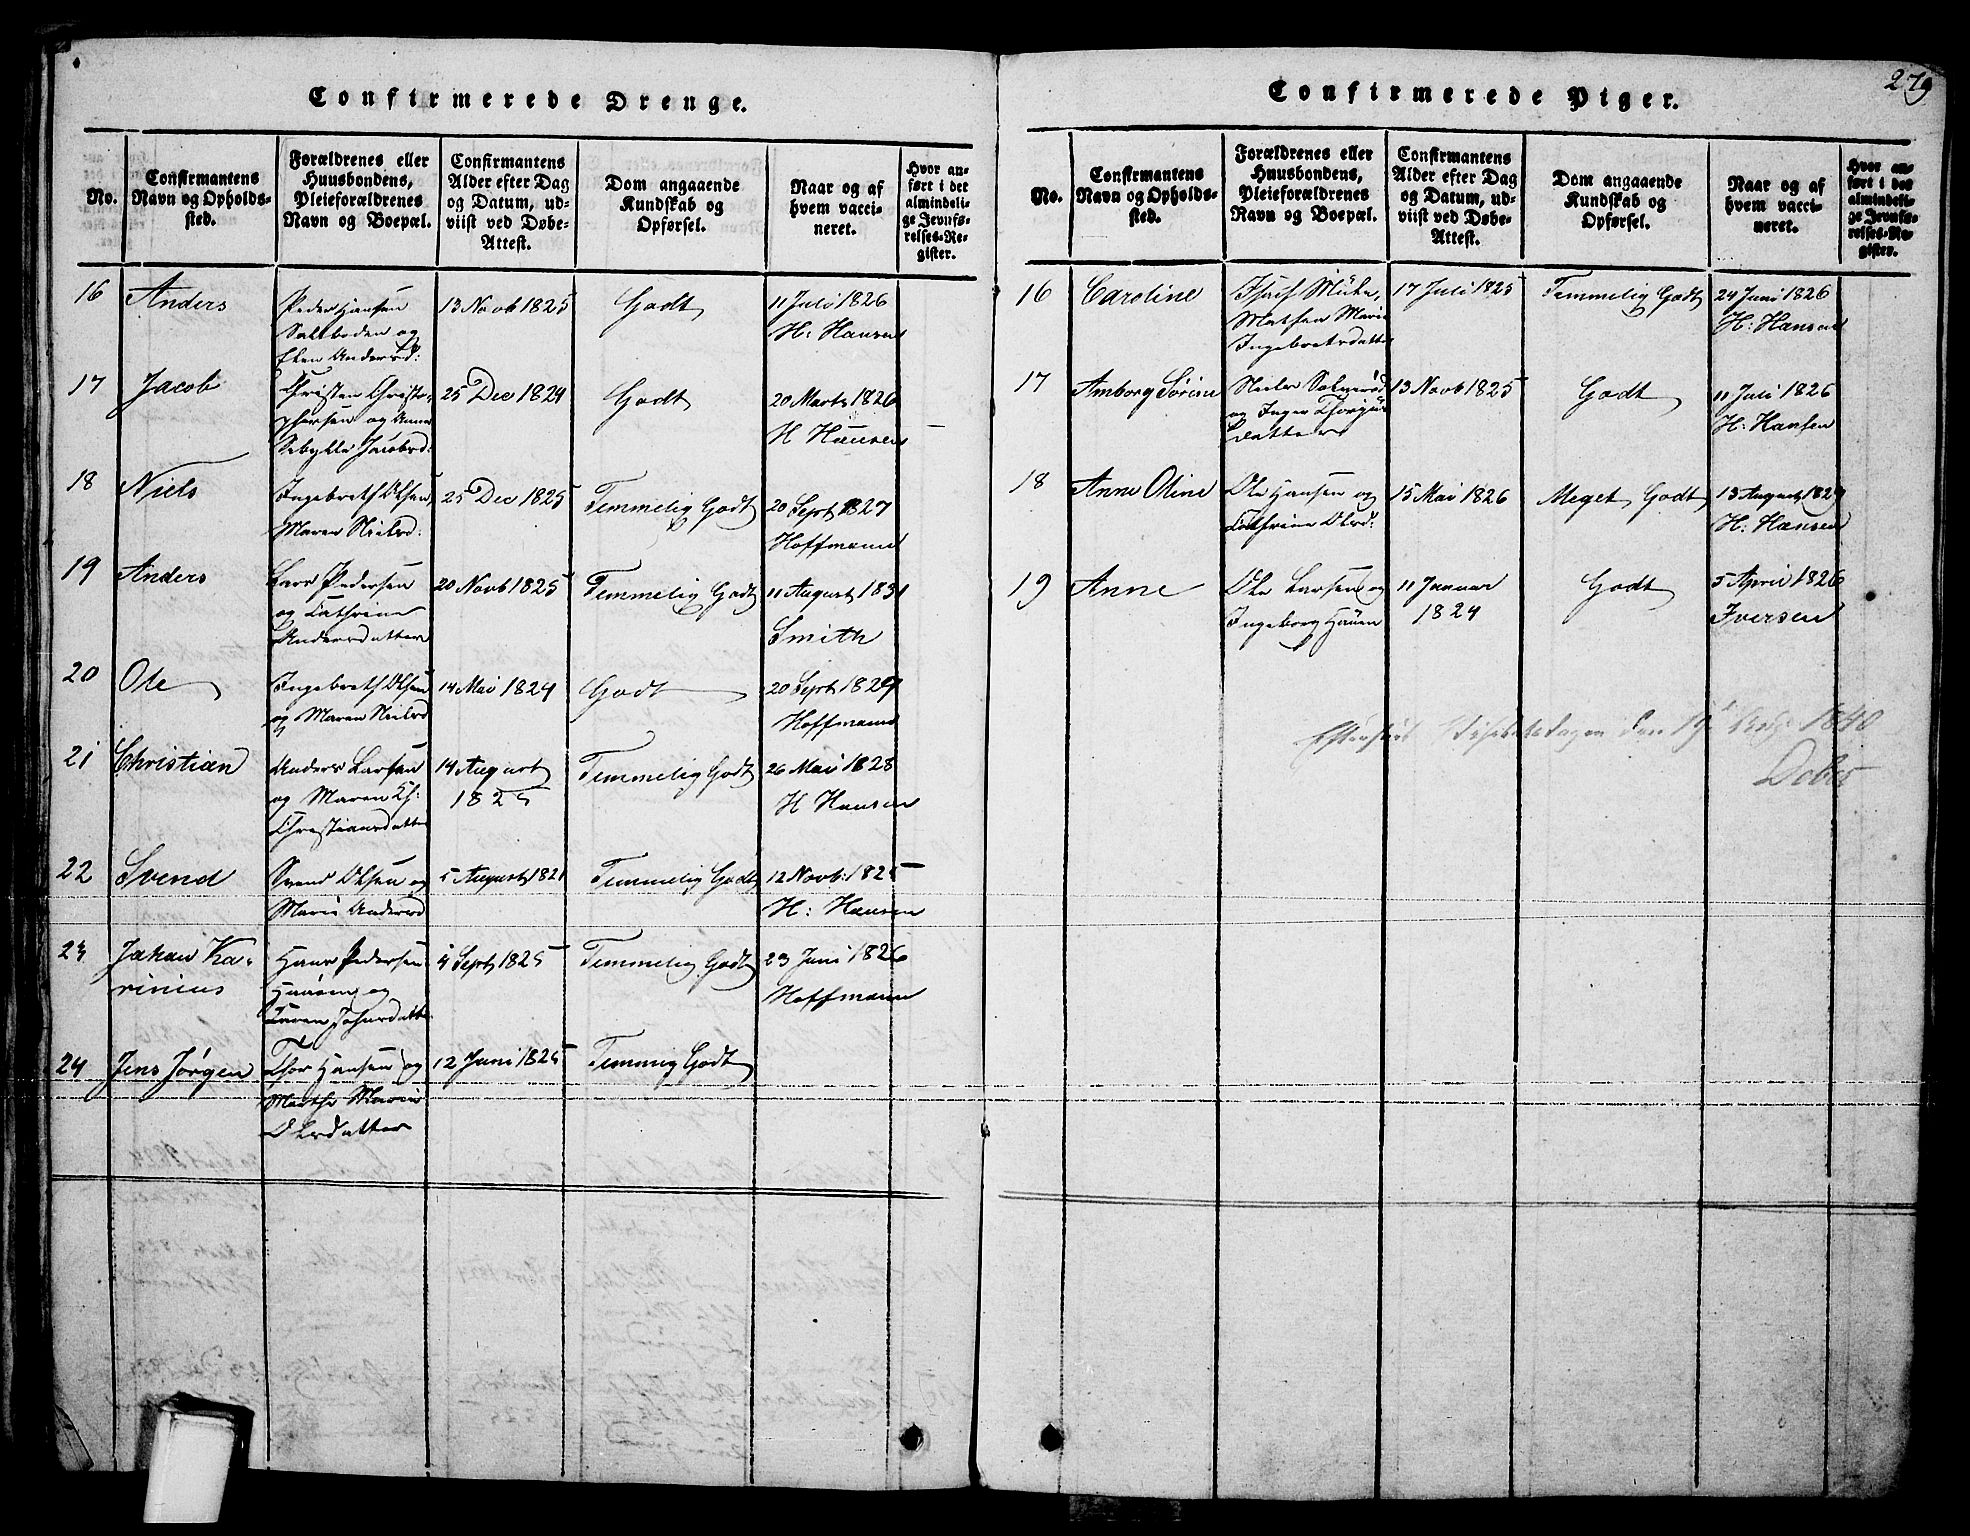 279
Confirmerede Drenge.
No.
Confirmantens
Navn og Opholds-
sted.
Forældrenes eller
Huusbondens,
Pleieforældrenes
Navn og Boepæl.
Confirmantens
Alder efter Dag
og Datum, ud-
viist ved Døbe-
Attest.
Dom angaaende
Kundskab og
Opførsel.
Naar og af
hvem vacci-
neret.
Hvor an-
ført i det
almindeli-
ge Jevnfø-
relses-Re-
gister.
16 Anders
Peder Hansen
Saltboden og
Elen Andersd:
13 Novb 1825
Godt
11 Juli 1826
H: Hansen
17 Jacob
Christen Christo-
phersen og Anne
Sebylle Jacobsd:
25 Dec 1824
Godt
20 Marts 1826
H Hansen
18 Niels
Ingebreth Olsen,
Maren Nielsd:
25 Dec 1825
Temmelig Godt
20 Sept 1827
Hoffmann
19 Anders
Lars Pedersen
og Cathrine
Andersdatter
20 Novb 1825
Temmelig Godt
11 August 1831
Smith
20 Ole
Ingebreth Olsen
og Maren Nielsd
14 Mai 1824
Godt
20 Sept 1827
Hoffmann
21 Christian
Anders Larsen
og Maren Ch:
Christiansdatter
14 August
1825
Temmelig Godt
26 Mai 1828
H Hansen
22 Svend
Svend Olsen og
Marie Andersd
5 August 1821
Temmelig Godt
12 Novb: 1825
H: Hansen
23 Johan Ka-
rinius
Hans Pedersen
og
Karen Johnsdatter
4 Sept 1825
Temmelig Godt
23 Juni 1826
Hoffmann
24 Jens Jørgen
Thor Hansen og
Marthe Marie
Olsdatter
12 Juni 1825
Temmig Godt
Confirmerede Piger.
No.
Confirmantens
Navn og Opholds-
sted.
Forældrenes eller
Huusbondens,
Pleieforældrenes
Navn og Boepæl.
Confirmantens
Alder efter Dag
og Datum, ud-
viist ved Døbe-
Attest.
Dom angaaende
Kundskab og
Opførsel.
Naar og af
hvem vacci-
neret.
Hvor an-
ført i det
almindeli-
ge Jevnfø-
relses-Re-
gister.
16 Caroline
Marie
Ingebretsdatter
17 Juli 1825
Temmelig Godt
24 Juni 1826
H: Hansen
17 Amborg Sørine
Niels
og Inger
datter
13 Novb 1825
Godt
11 Juli 1826
H: Hansen
18 Anne Oline
Ole Hansen og
Cathrine Olsd:
15 Mai 1826
Meget Godt
13 August 1829
H: Hansen
19 Anne
Ole Larsen og
Ingeborg
11 Januar
1824
Godt
5 April 1826
Iversen
den 19
1840